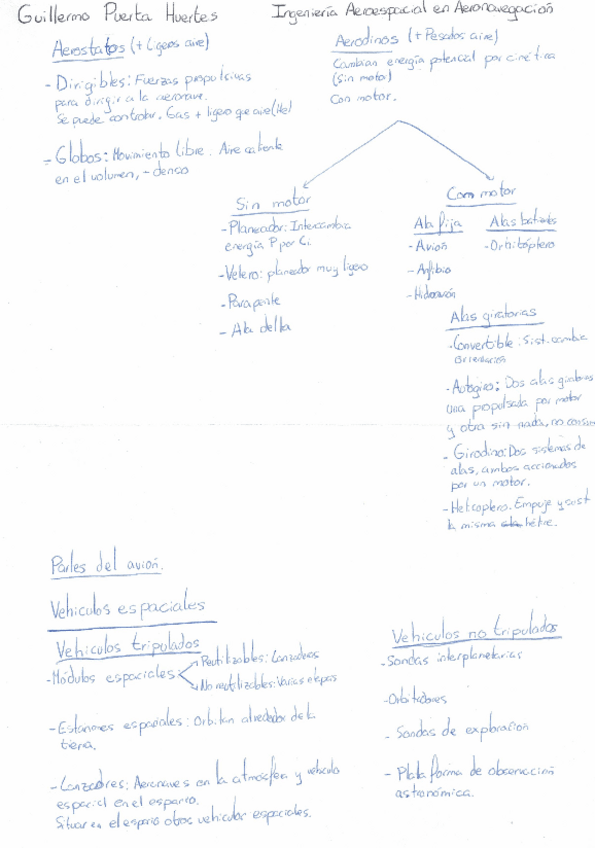 Guillermo Puerta Huertes
Ingeniería Aeroespacial en Aeronavegación
Aerostatos (+ Ligeros aire)
- Dirigibles: Fuerzas propulsivas
para dirigir a la aeronave.
Se puede controlar. Gas + ligero que aire (He)
- Globos: Movimiento libre. Aire caliente
en el volumen, - denso
Aerodinos (+ Pesados aire)
Cambian energía potencial por cinética
(sin motor)
Con motor.
Sin motor
- Planeador: Intercambia
energía P por Ci.
- Velero: planeador muy ligero
- Parapente
- Ala delta
Con motor
Ala fija
- Avión
- Anfibio
- Hidroavión
Alas batientes
- Ornitóptero
Alas giratorias
- Convertible: Sist. cambia
orientación
- Autogiro: Dos alas giratorias
una propulsada por motor
y otra sin nada, no
- Girodino: Dos sistemas de
alas, ambos accionados
por un motor.
- Helicoptero. Empuje y sust
la misma hélice.
Partes del avión.
Vehiculos espaciales
Vehiculos tripulados
- Módulos espaciales
Reutilizables: Lanzaderas
No reutilizables: Varias etapas
- Estaciones espaciales: Orbitan alrededor de la
tierra.
- Lanzadores: Aeronaves en la atmosfera y vehículo
espacial en el espacio.
Situar en el espacio otros vehiculos espaciales.
Vehiculos no tripulados
- Sondas interplanetarias
- Orbitadores
- Sondas de exploracion
- Plataforma de observación
astronómica.